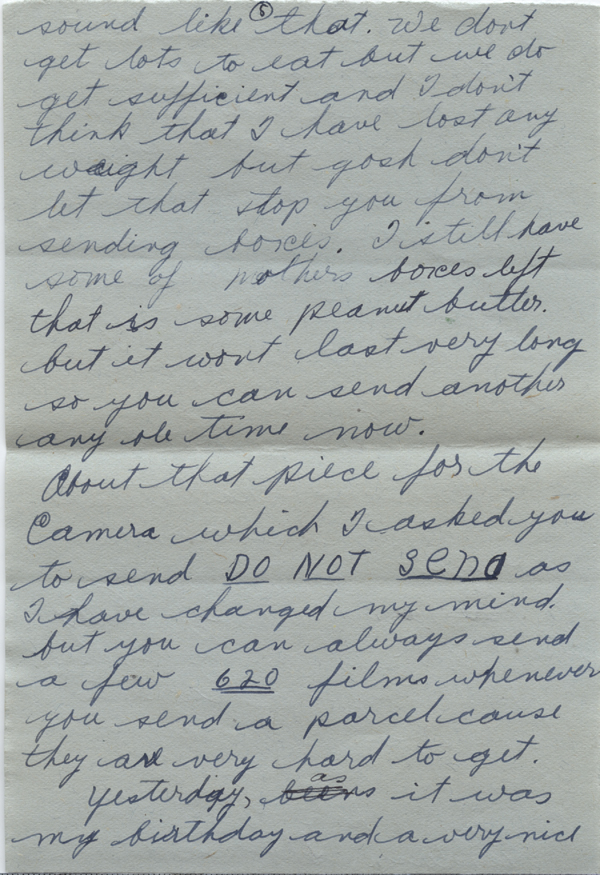 5
sound like that. We dont
get lots to eat but we do
get sufficient and I don't
think that I have lost any
weight but gosh don't
let that stop you from
sending boxes. I still have
some of mothers boxes left
that is some peanut butter.
but it wont last very long
so you can send another
any ole time now.
About that piece for the
Camera which I asked you
to send DO NOT SEND as
I have changed my mind.
but you can always send
a few 620 films whenever
you send a parcel cause
they are very hard to get.
Yesterday, as it was
my birthday and a very nice